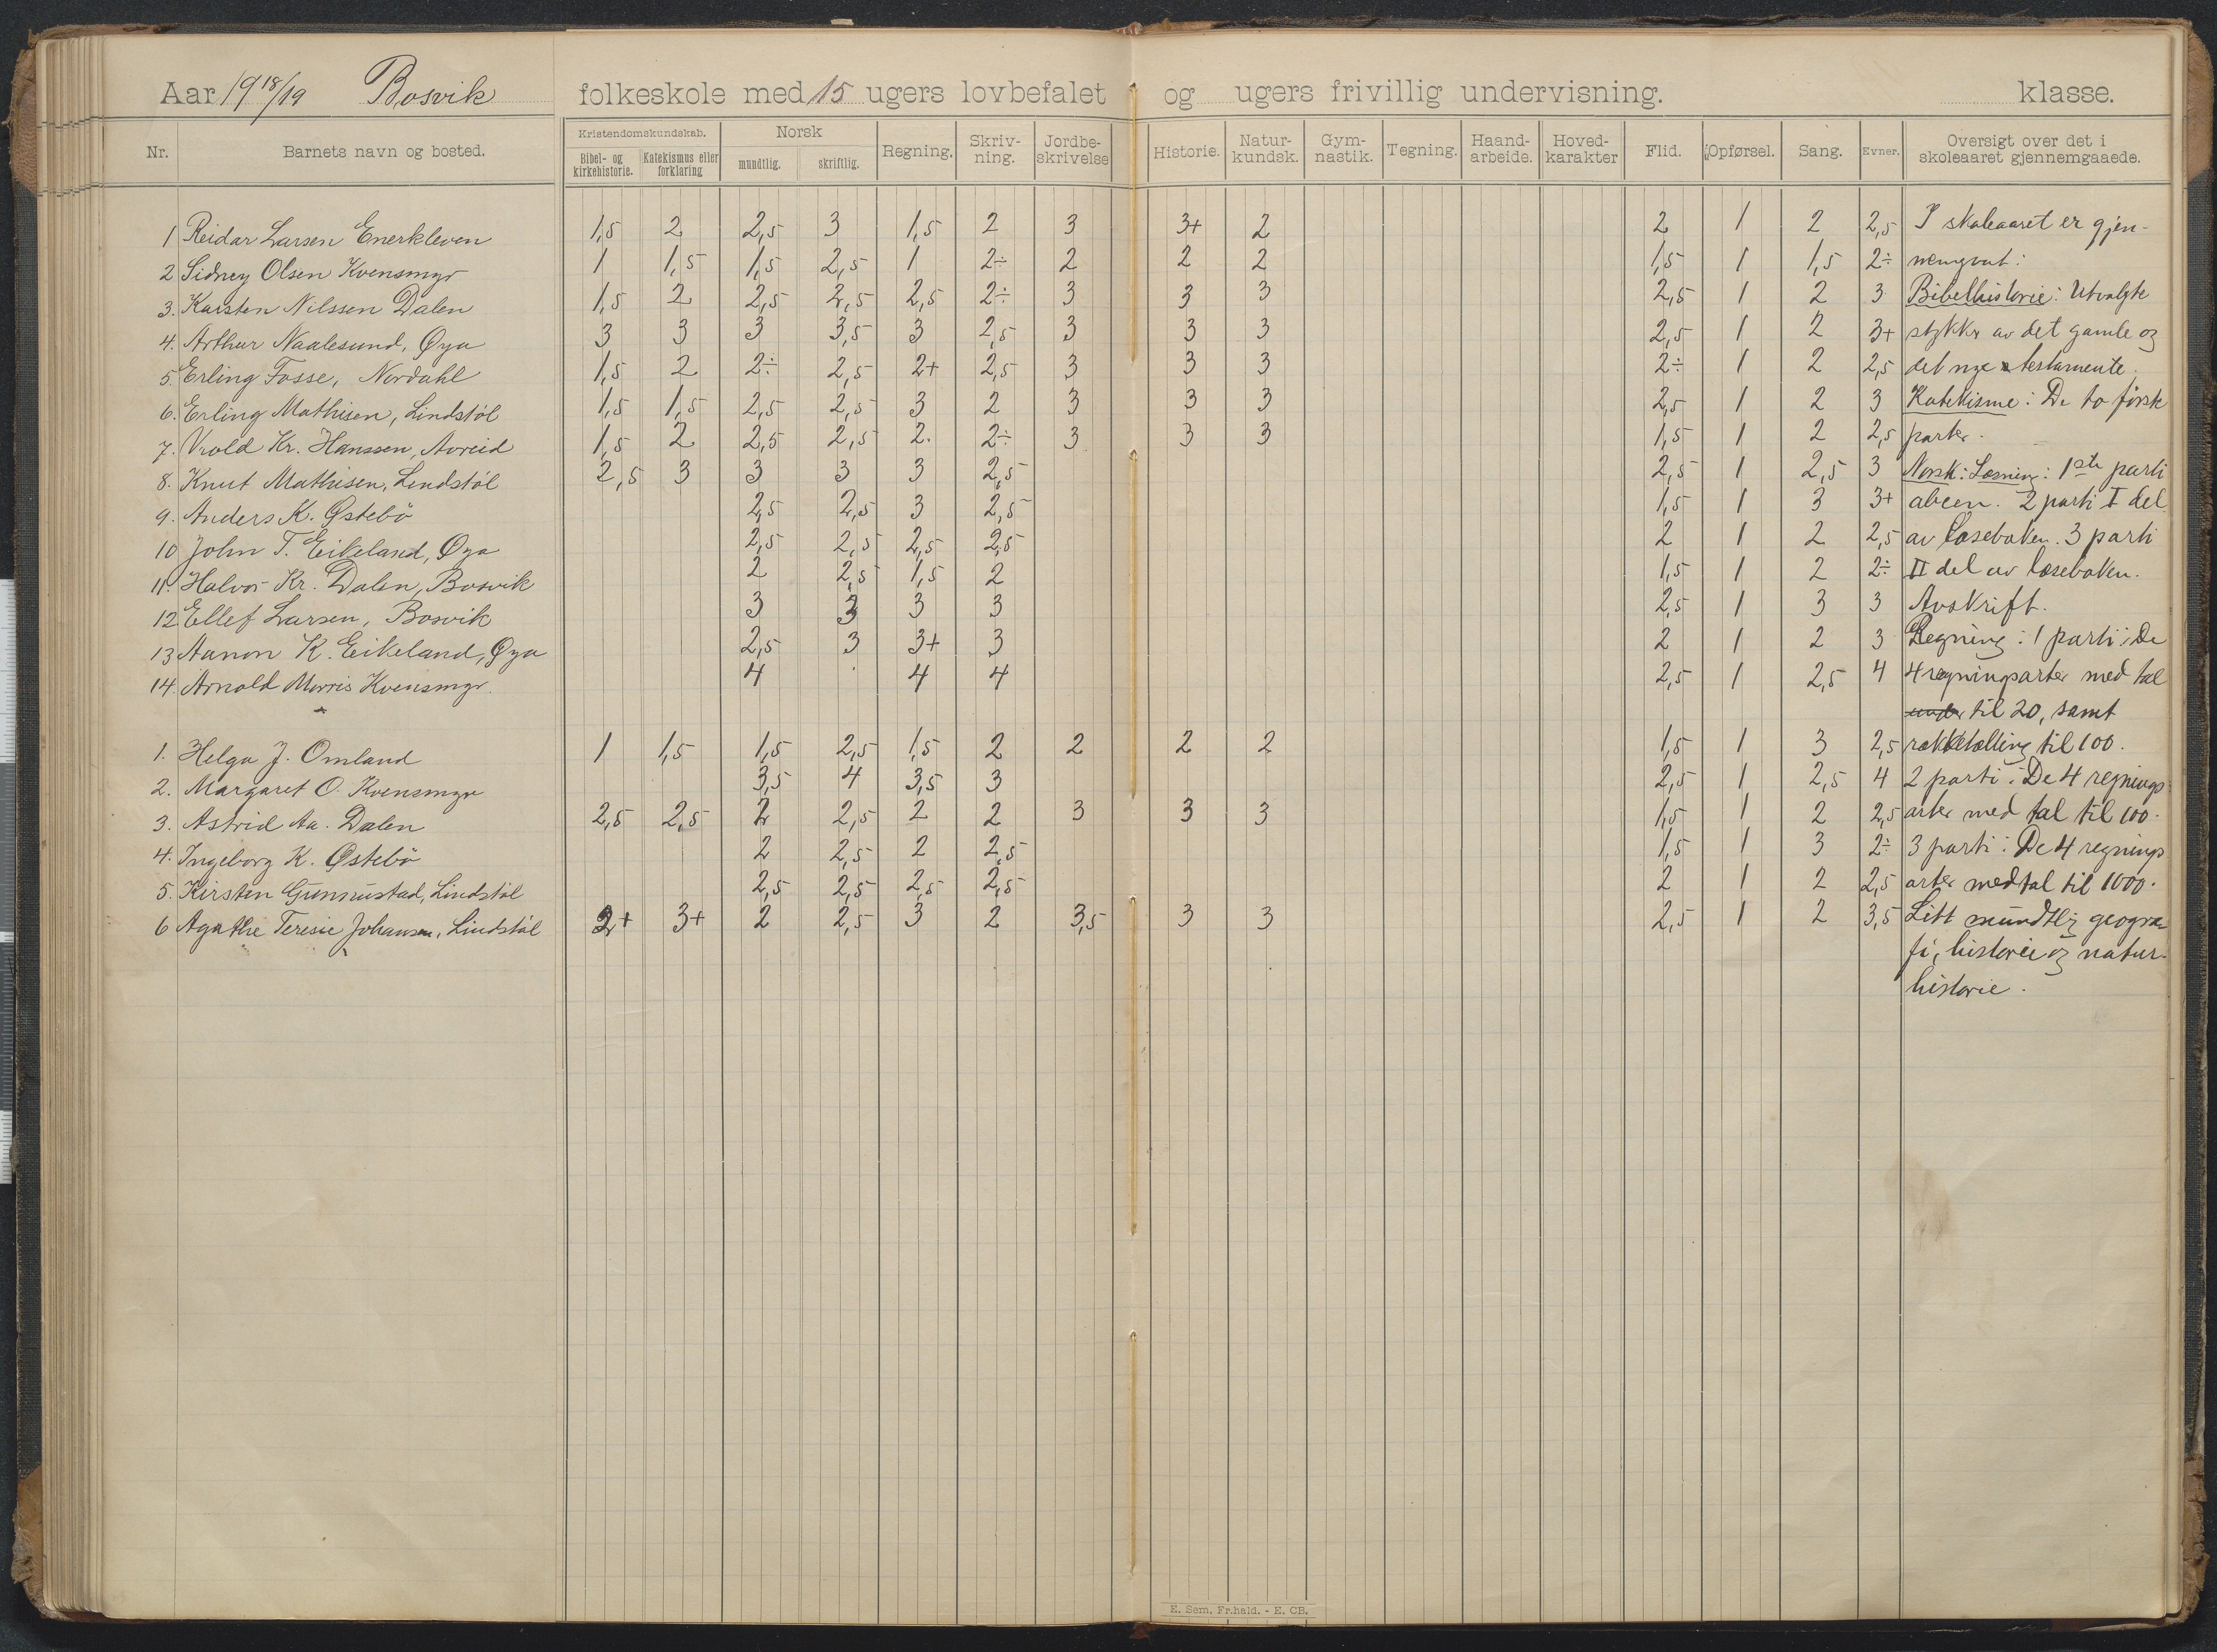 Aar 1918/19 Bosvik folkeskole med 15 ugers lovbefalet og ugers frivillig undervisning. klasse.
Nr. Barnets navn og bosted. Kristendomskundskab. Bibel- og kirkehistorie. Katekismus eller forklaring Norsk mundtlig. skriftlig. Regning. Skriv-ning. Jordbe-skrivelse Historie. Natur-kundsk. Gym-nastik. Tegning. Haand-arbeide. Hoved-karakter Flid. Opførsel. Sang. Evner. Oversigt over det i skoleaaret gjennemgaaede.
1 Reidar Larsen Enerkleven 1,5 2 2,5 3 1,5 2 3 3+ 2 2 1 2 2,5 I skoleaaret er gjen-
2 Sidney Olsen Kvensmyr 1 1,5 1,5 2,5 1 2÷ 2 2 2 1,5 1 1,5 2÷ nemgaat:
3. Karsten Nilssen Dalen 1,5 2 2,5 2,5 2,5 2÷ 3 3 3 2,5 1 2 3 Bibelhistorie: Utvalgte
4. Arthur Naalesund, Øya 3 3 3 3,5 3 2,5 3 3 3 2,5 1 2 3+ stykkr av det gamle og
5. Erling Fosse, Nordahl 1,5 2 2÷ 2,5 2+ 2,5 3 3 3 2÷ 1 2 2,5 det nye testamente.
6. Erling Mathisen, Lindstöl 1,5 1,5 2,5 2,5 3 2 3 3 3 2,5 1 2 3 Katekisme: De to förste
7. Vrold Kr. Hanssen, Avreid 1,5 2 2,5 2,5 2. 2÷ 3 3 3 1,5 1 2 2,5 parter.
8. Knut Mathisen, Lindstöl 2,5 3 3 3 3 2,5 2,5 1 2,5 3 Norsk: Læsning: 1ste parti
9. Anders K. Østebö 2,5 2,5 3 2,5 1,5 1 3 3+ abcen. 2 parti I del
10 John T. Eikeland, Øya 2,5 2,5 2,5 2,5 2 1 2 2,5 av læseboken. 3 parti
11. Halvor Kr. Dalen, Bosvik 2 2,5 1,5 2 1,5 1 2 2÷ II del av læseboken.
12 Ellef Larsen, Bosvik 3 3 3 3 2,5 1 3 3 Avskrift.
13 Aanon K. Eikeland, Øya 2,5 3 3+ 3 2 1 2 3 Regning: 1 parti: De
14. Arnold Morris Kvensmyr. 4 4 4 2,5 1 2,5 4 4 regningsarter med tal
under til 20, samt
1. Helga J. Omland 1 1,5 1,5 2,5 1,5 2 2 2 2 1,5 1 3 2,5 rækketælling til 100.
2. Margaret O. Kvensmyr 3,5 4 3,5 3 2,5 1 2,5 4 2 parti: De 4 regnings
3. Astrid Aa. Dalen 2,5 2,5 2 2,5 2 2 3 3 3 1,5 1 2 2,5 arter med tal til 100.
4. Ingeborg K. Østebö 2 2,5 2 2,5 1,5 1 3 2÷ 3 parti: De 4 regnings
5. Kirsten Gunnustad, Lindstöl 2,5 2,5 2,5 2,5 2 1 2 2,5 arter med tal til 1000.
6 Agathe Teresie Johansen, Lindstöl 2+ 3+ 2 2,5 3 2 3,5 3 3 2,5 1 2 3,5 Litt mundtlig geogra-
fi, historie og natur-
historie.
E. Sem. Fr.hald. - E. CB.